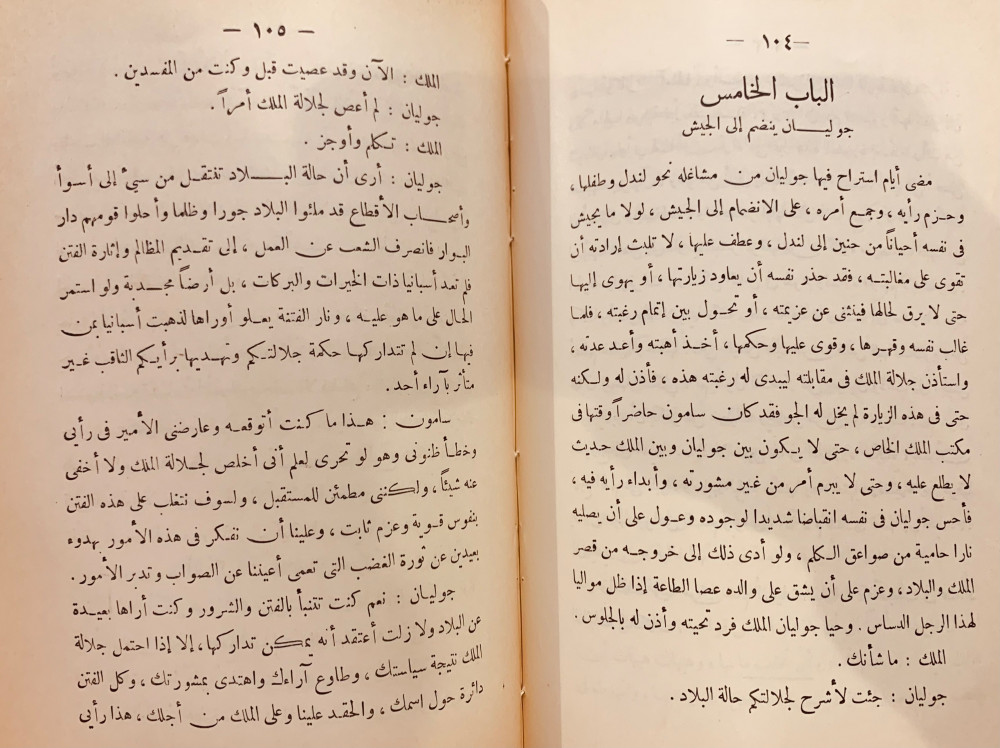 — ١٠٤ —
الباب الخامس
جوليان ينضم إلى الجيش
مضى أيام استراح فيها جوليان من مشاغله نحو لندل وطفلها ،
وحزم رأيه ، وجمع أمره ، على الانضمام إلى الجيش ، لولا ما يجيش
فى نفسه أحياناً من حنين إلى لندل ، وعطف عليها ، لا تلبث إرادته أن
تقوى على مغالبته ، فقد حذر نفسه أن يعاود زيارتها ، أو يهوى إليها
حتى لا يرق لحالها فينثنى عن عزيمته ، أو تحول بين إتمام رغبته ، فلما
غالب نفسه وقهرها ، وقوى عليها وحكمها ، أخذ أهبته وأعد عدته ،
واستأذن جلالة الملك فى مقابلته ليبدى له رغبته هذه ، فأذن له ولكنه
حتى فى هذه الزيارة لم يخل له الجو فقد كان سامون حاضراً وقتها فى
مكتب الملك الخاص ، حتى لا يكون بين جوليان وبين الملك حديث
لا يطلع عليه ، وحتى لا يبرم أمر من غير مشورته ، وأبداء رأيه فيه ،
فأحس جوليان فى نفسه انقباضا شديدا لوجوده وعول على أن يصليه
نارا حامية من صواعق الكلم ، ولو أدى ذلك إلى خروجه من قصر
الملك والبلاد ، وعزم على أن يشق على والده عصا الطاعة إذا ظل مواليا
لهذا الرجل الدساس . وحيا جوليان الملك فرد تحيته وأذن له بالجلوس .
الملك : ما شأنك .
جوليان : جئت لأشرح لجلالتكم حالة البلاد .
— ١٠٥ —
الملك : الآن وقد عصيت قبل وكنت من المفسدين .
جوليان : لم أعص لجلالة الملك أمراً .
الملك : تكلم وأوجز .
جوليان : أرى أن حالة البلاد تنتقل من سيىء إلى أسوأ
وأصحاب الأقطاع قد ملئوا البلاد جورا وظلما وأحلوا قومهم دار
البوار فانصرف الشعب عن العمل ، إلى تقديم المظالم وإثارة الفتن
فلم تعد أسبانيا ذات الخيرات والبركات ، بل أرضاً مجدبة ولو استمر
الحال على ما هو عليه ، ونار الفتنة يعلو أوراها لذهبت أسبانيا بمن
فيها إن لم تتداركها حكمة جلالتكم وتهديها برأيكم الثاقب غير
متأثر بآراء أحد .
سامون : هذا ما كنت أتوقعه وعارضنى الأمير فى رأيى
وخطأ ظنونى وهو لو تحرى لعلم أنى أخلص لجلالة الملك ولا أخفى
عنه شيئاً ، ولكننى مطمئن للمستقبل ، ولسوف نتغلب على هذه الفتن
بنفوس قوية وعزم ثابت ، وعلينا أن نفكر فى هذه الأمور بهدوء
بعيدين عن ثورة الغضب التى تعمى أعيننا عن الصواب وتدبر الأمور .
جوليان : نعم كنت تتنبأ بالفتن والشرور وكنت أراها بعيدة
عن البلاد ولا زلت أعتقد أنه يمكن تداركها ، إلا إذا احتمل جلالة
الملك نتيجة سياستك ، وطاوع آراءك واهتدى بمشورتك ، وكل الفتن
دائرة حول اسمك ، والحقد علينا وعلى الملك من أجلك ، هذا رأيى